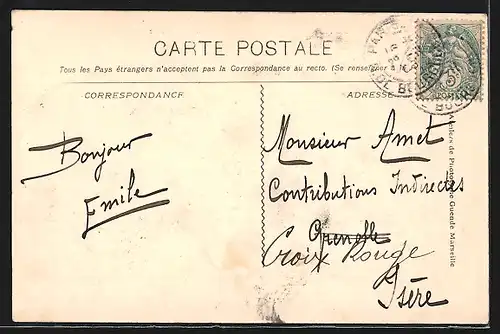 CARTE POSTALE
Tous les Pays étrangers n'acceptent pas la Correspondance au recto. (Se renseigner
CORRESPONDANCE
ADRESSE
Bonjour
Emile
Monsieur Amet
Contributions Indirectes
Grenelle
Croix Rouge
Isère
de Guende Marseille